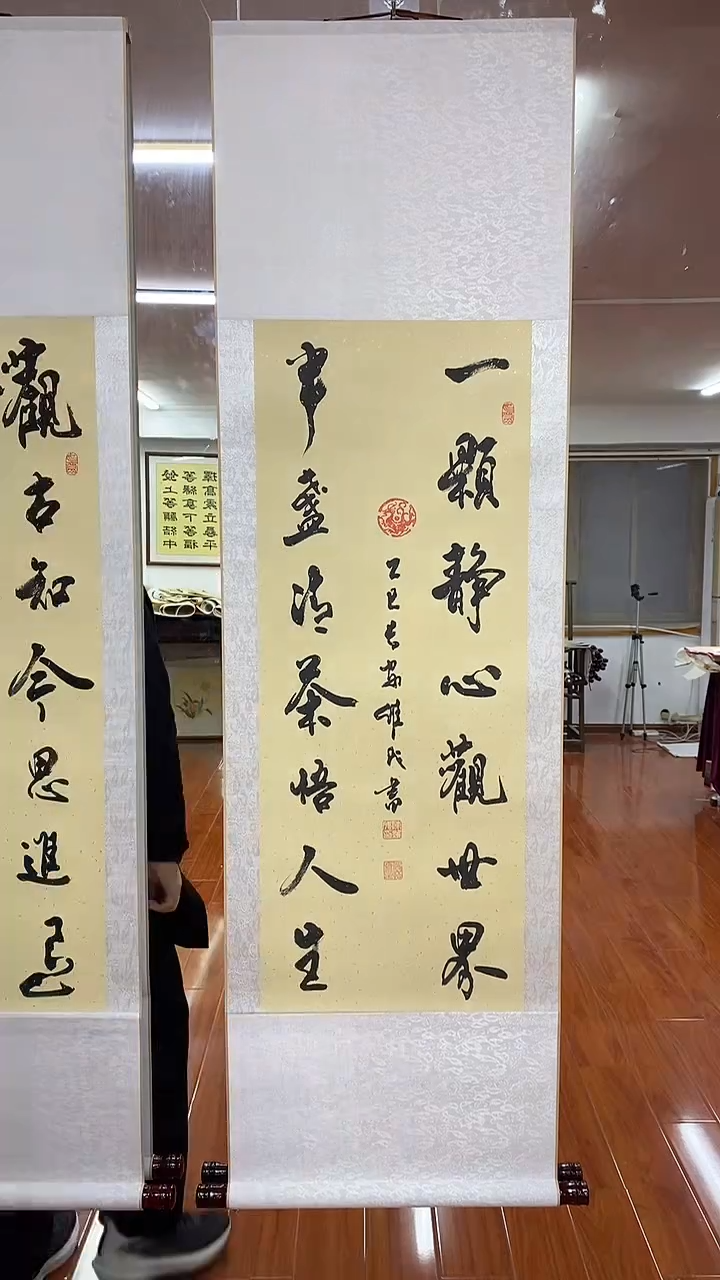 一顆靜心觀世界
半盞清茶悟人生
乙巳 維民書
觀古知今思進退